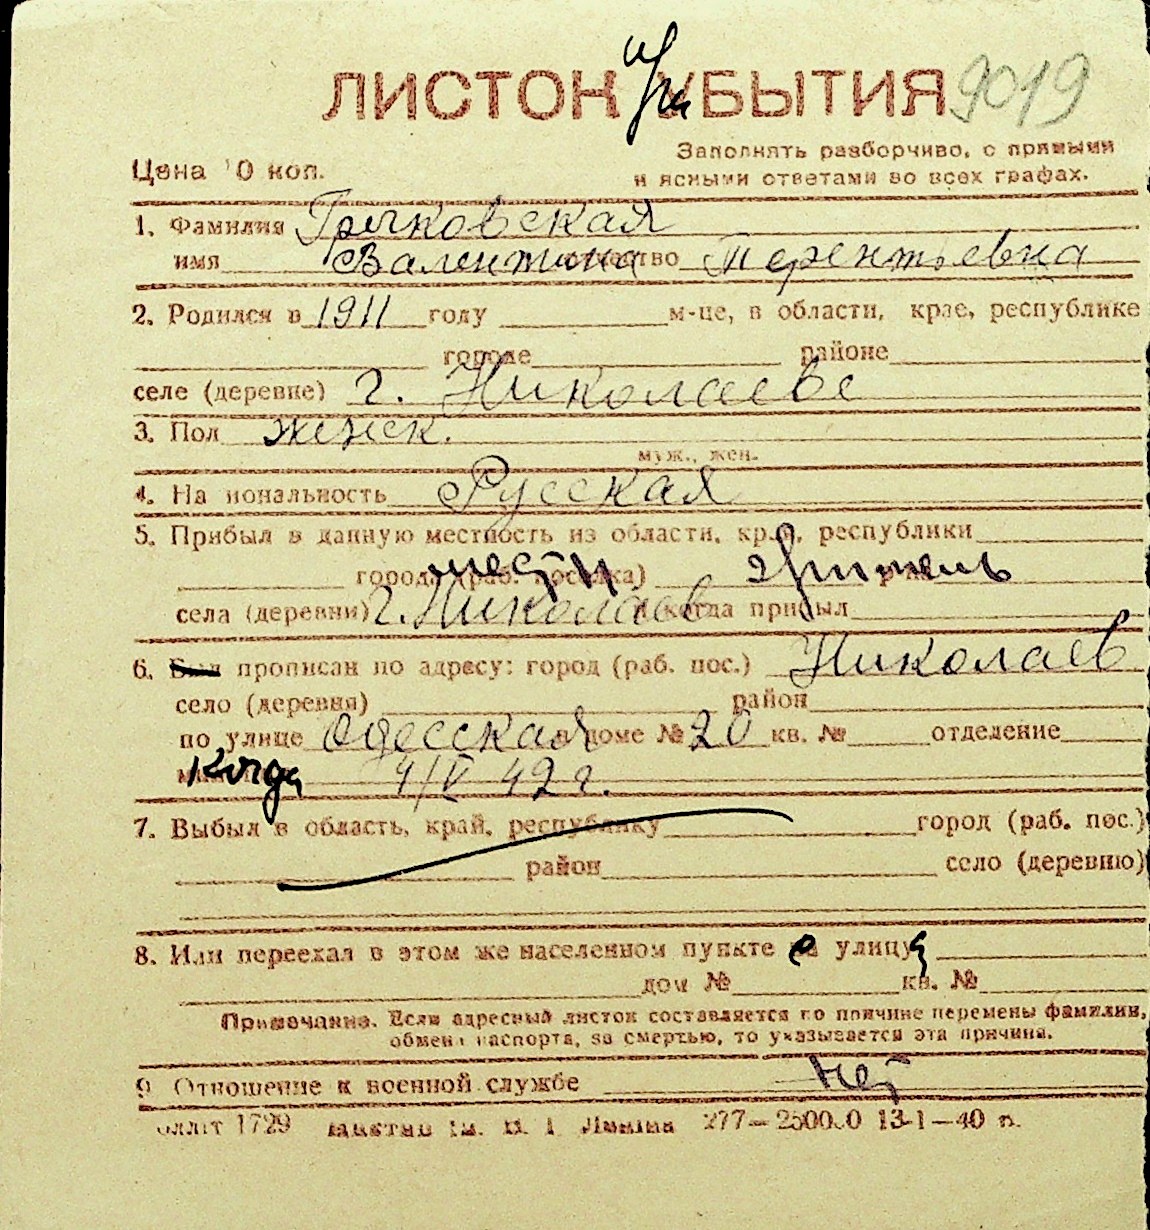 ЛИСТОК при УБЫТИЯ 9019
Цена 10 коп.
Заполнять разборчиво, с прямыми
и ясными ответами во всех графах.
1. Фамилия Грычковская
имя Валентина отчество Терентьевна
2. Родился в 1911 году м-це, в области, крае, республике
городе районе
селе (деревне) г. Николаеве
3. Пол женск.
муж., жен.
4. Национальность Русская
5. Прибыл в данную местность из области, края, республики
города (раб. поселка) местн житель
села (деревни) г. Николаев и когда прибыл
6. Был прописан по адресу: город (раб. пос.) Николаев
село (деревня) район
по улице Одесская в доме № 20 кв. № отделение
Когда 4/V 42 г.
7. Выбыл в область, край, республику город (раб. пос.)
район село (деревню)
8. Или переехал в этом же населенном пункте с улицы
дом № кв. №
Примечание. Если адресный листок составляется по причине перемены фамилии,
обмена паспорта, за смертью, то указывается эта причина.
9 Отношение к военной службе Нет
1729 277—250000 13-1—40 п.